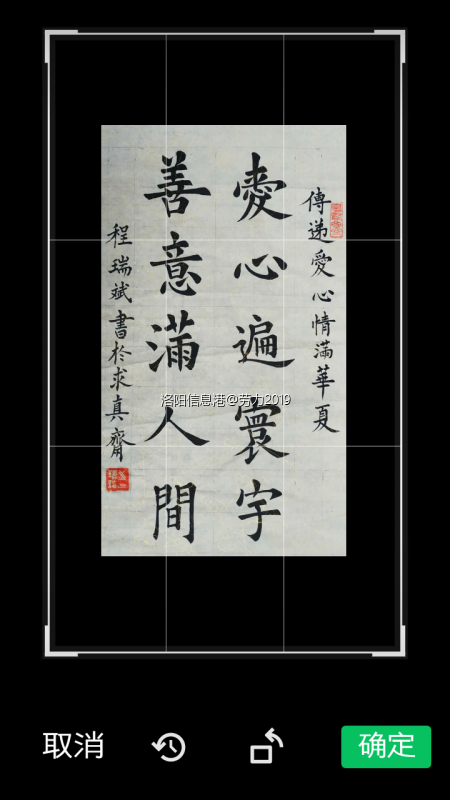 傳遞愛心情滿華夏
愛心遍寰宇
善意滿人間
程瑞斌書於求真齋
洛阳信息港@劳力2019
取消
确定